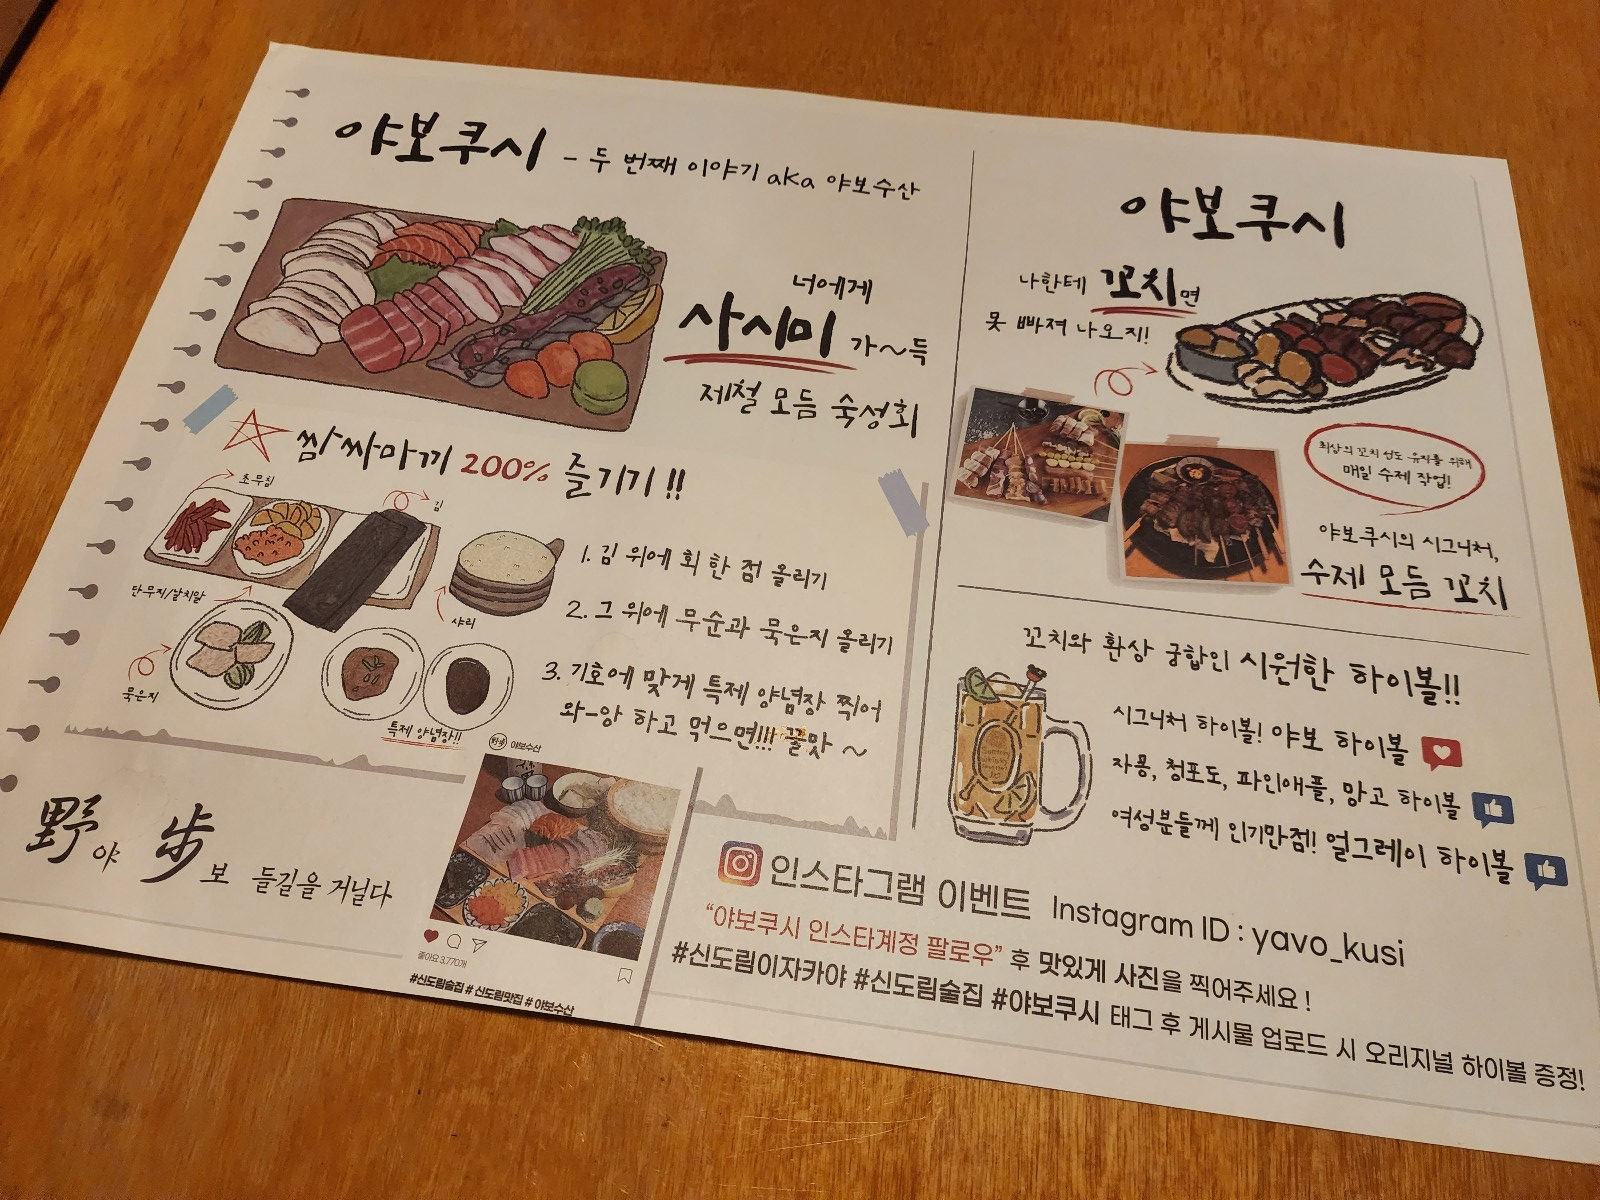 야보쿠시 - 두 번째 이야기 aka 야보수산
너에게
사시미 가~득
제철 모듬 숙성회
쌈싸마끼 200% 즐기기!!
초무침
김
단무지/날치알
샤리
묵은지
특제 양념장!!
1. 김 위에 회 한 점 올리기
2. 그 위에 무순과 묵은지 올리기
3. 기호에 맞게 특제 양념장 찍어
와-앙 하고 먹으면!!! 꿀맛~
野야 步보 들길을 거닐다
야보수산
좋아요 3,770개
#신도림술집 #신도림맛집 #야보수산
야보쿠시
나한테 꼬치면
못 빠져 나오지!
최상의 꼬치 선도 유지를 위해
매일 수제 작업!
야보쿠시의 시그니처,
수제 모듬 꼬치
꼬치와 환상 궁합인 시원한 하이볼!!
시그니처 하이볼! 야보 하이볼
자몽, 청포도, 파인애플, 망고 하이볼
여성분들께 인기만점! 얼그레이 하이볼
인스타그램 이벤트 Instagram ID : yavo_kusi
“야보쿠시 인스타계정 팔로우” 후 맛있게 사진을 찍어주세요!
#신도림이자카야 #신도림술집 #야보쿠시 태그 후 게시물 업로드 시 오리지널 하이볼 증정!